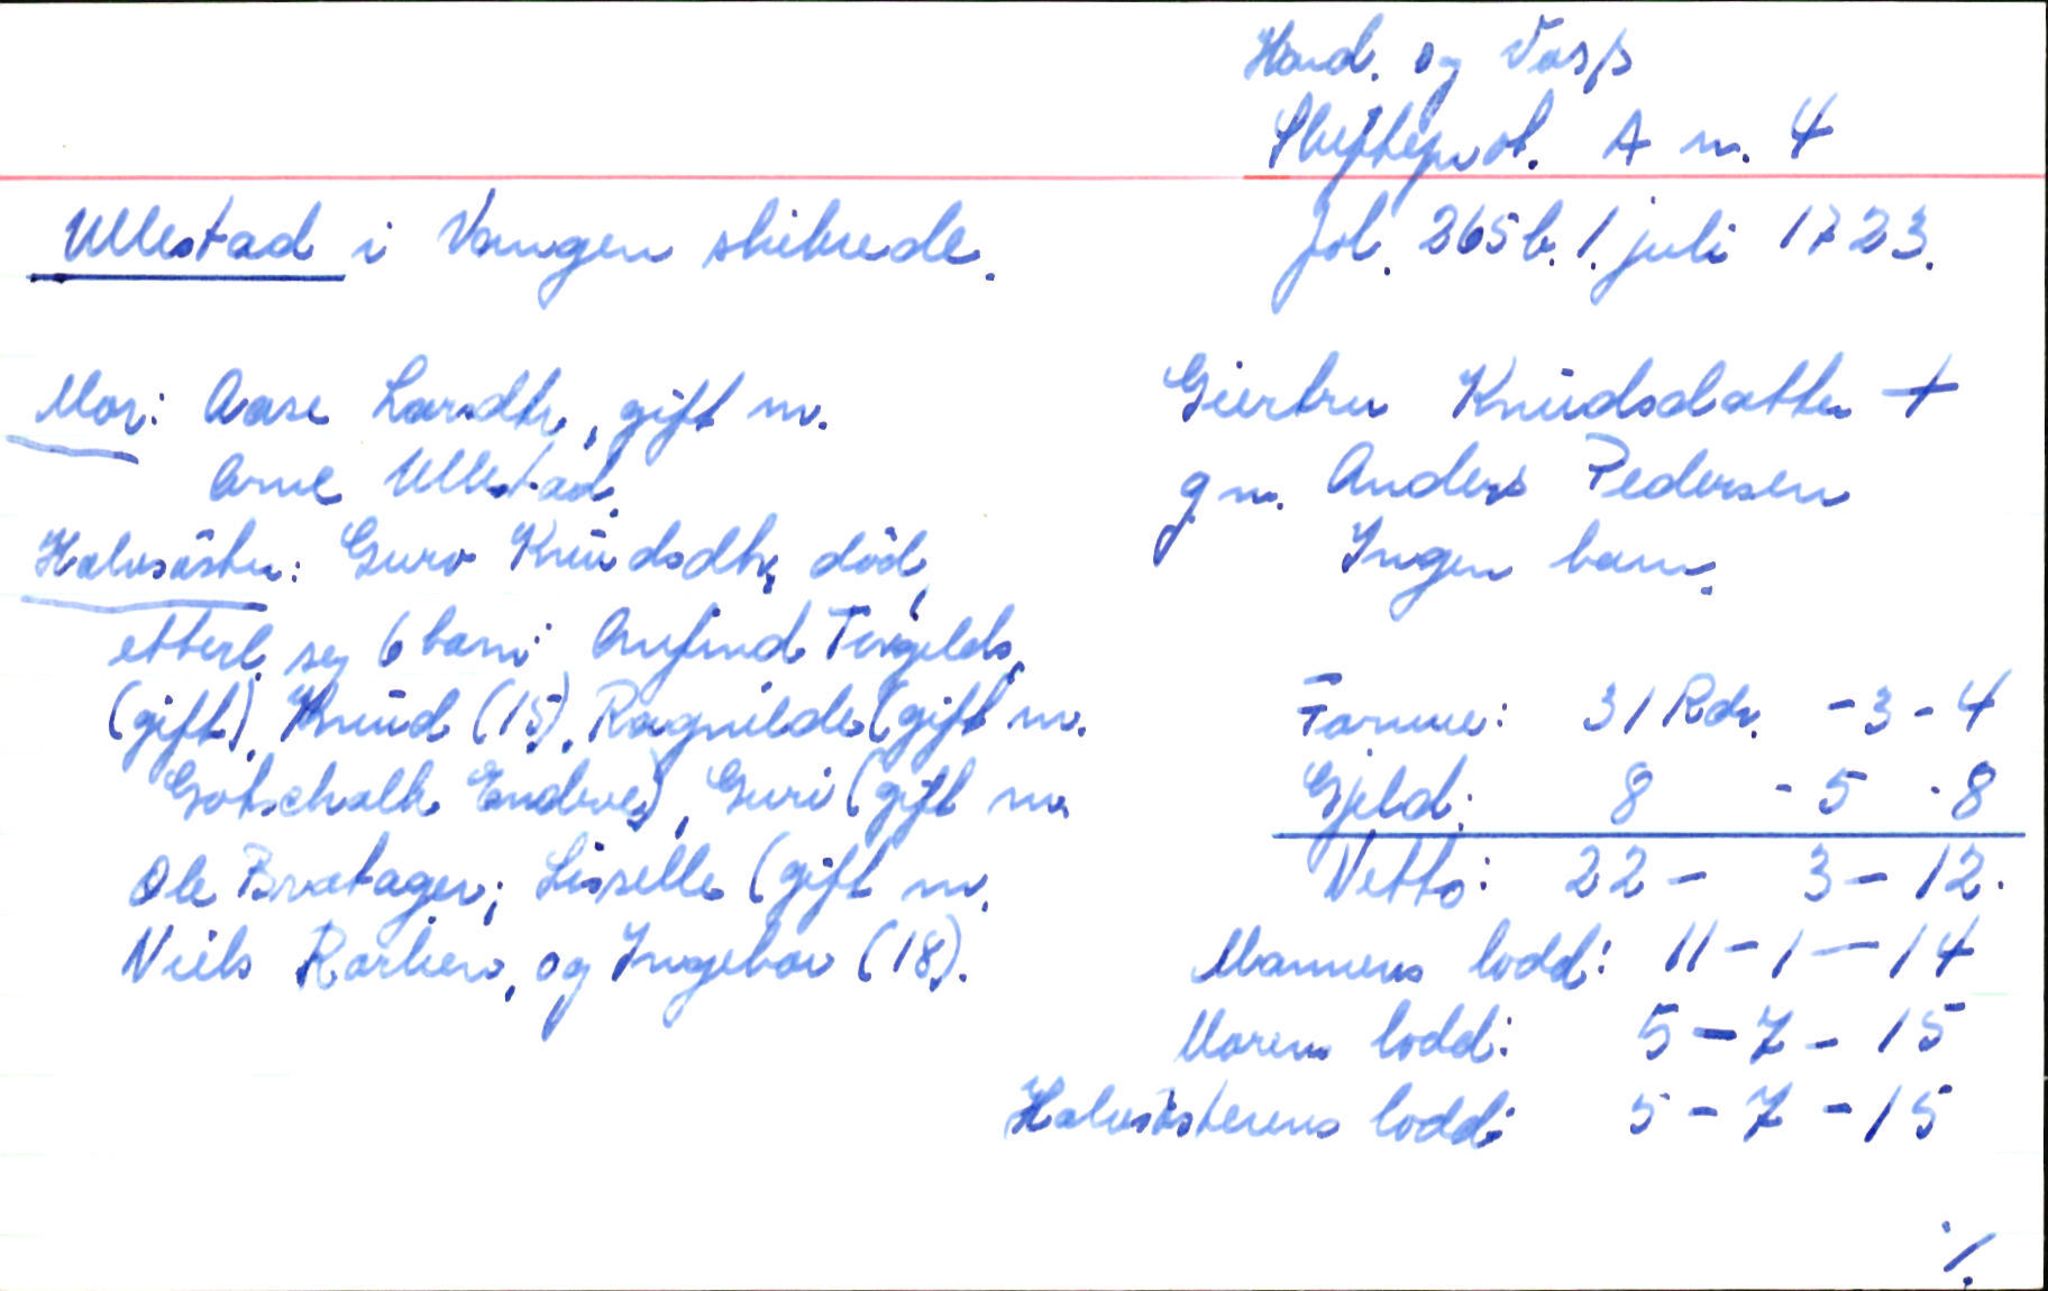 Hard. og Voss
Skifteprot. A nr. 4
Ullestad i Vangen skibrede.
fol. 265b. 1. juli 1723.
Mor: Aase Larsdtr, gift m.
Arne Ullestad.
Halvsöster: Guro Knudsdtr, död,
etterl. seg 6 barn: Anfind Torgilds,
(gift), Knud (15), Ragnilde (gift m.
Gotschalk Endeve), Guri (gift m.
Ole Bratager; Lisselle (gift m.
Niels Rorlien, og Ingebor (18).
Giertru Knudsdatter +
g.m. Anders Pedersen
Ingen barn.
Formue: 31 Rdr. - 3 - 4
Gjeld: 8 - 5 - 8
Netto: 22 - 3 - 12.
Mannens lodd: 11 - 1 - 14
Morens lodd: 5 - 7 - 15
Halvsösterens lodd: 5 - 7 - 15
./.